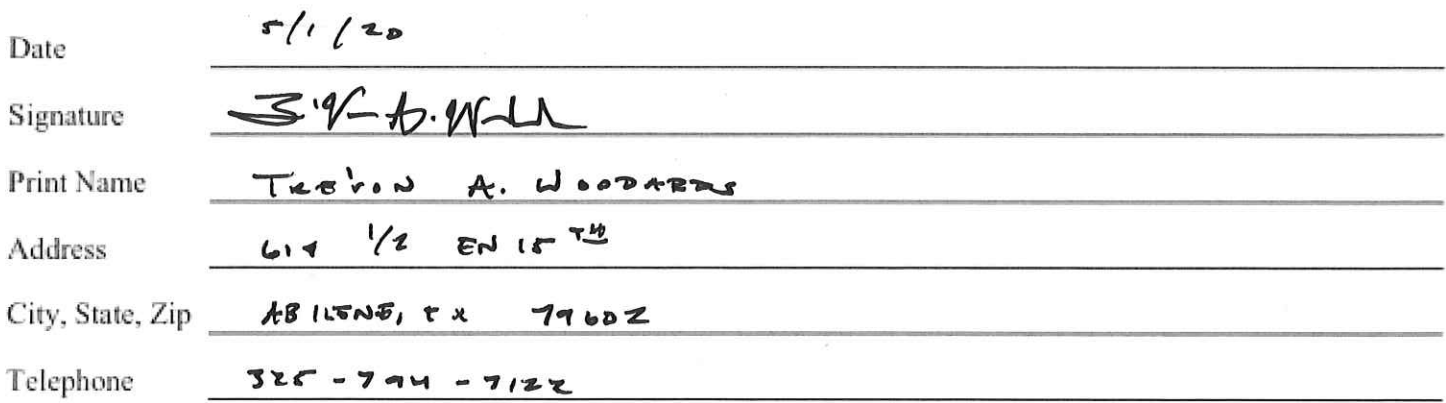 Date 5/1/20
Signature
Print Name TRE'VON A. WOODARDS
Address 1/2 EN 15TH
City, State, Zip ABILENE, TX 79602
Telephone 325-794-7122